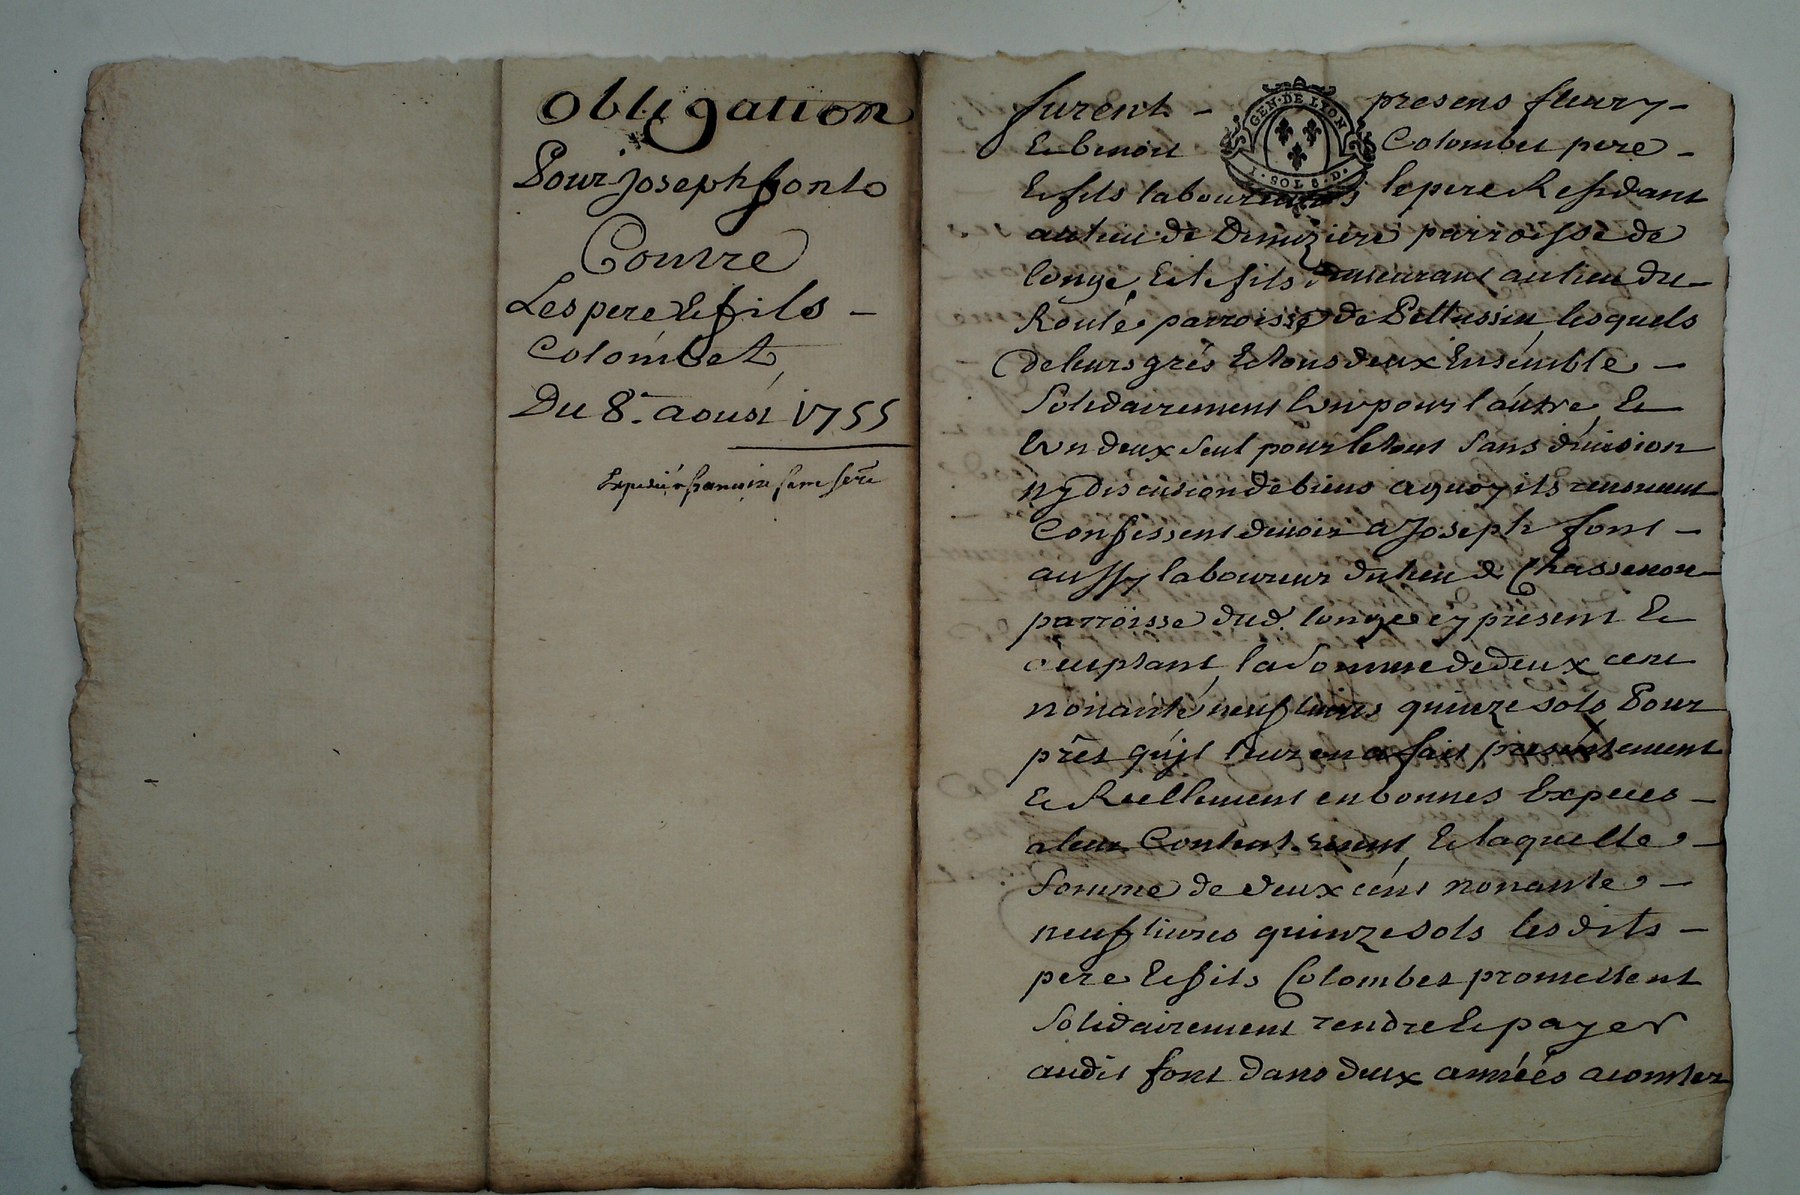 Obligation
Pour Joseph font
Contre
Les pere & fils
Colombet
Du 8e. aoust 1755
furent presens fleury
GEN. DE LYON
& benoit Colombet pere
1. SOL 8. D.
& fils laboureurs le pere Residant
au lieu de Dimizieu parroisse de
longe, & le fils demeurant au lieu du
Roulé parroisse de Pellussin lesquels
de leurs grés & tous deux Ensemble
Solidairement lun pour l'autre, &
lun deux seul pour le tout sans division
ny discution de biens a quoy ils renoncent
Confessent devoir a Joseph font
aussy laboureur du lieu de Chassenou
parroisse dud. longe cy present &
acceptant, la Somme de deux cent
nonante neuf livres quinze sols Pour
prêt qu'jl leur en a fait presentement
& Reellement en bonnes Especes
a leur Contentement, & laquelle
Somme de deux cent nonante
neuf livres quinze sols les dits
pere & fils Colombet promettent
Solidairement rendre & payer
audit font dans deux années a compter